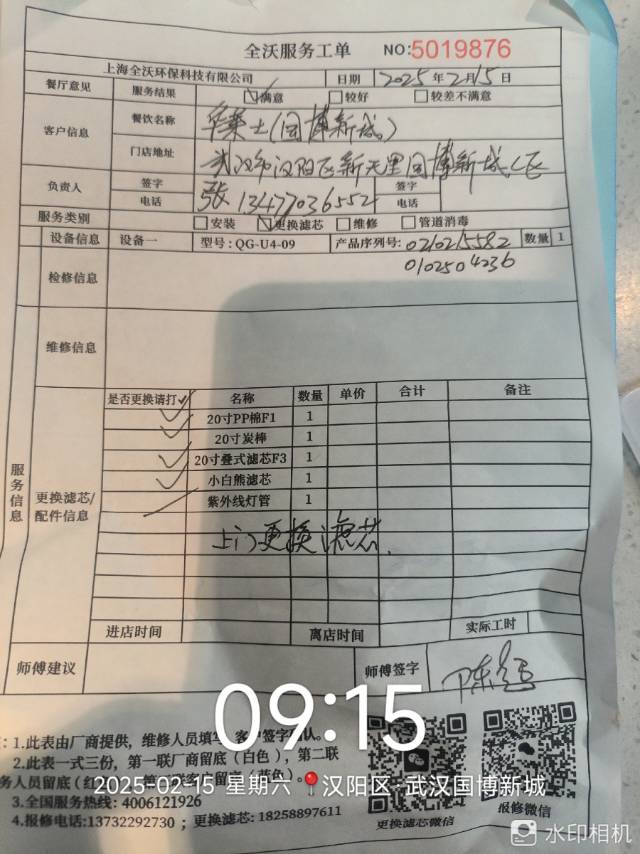 全沃服务工单 NO:5019876
上海全沃环保科技有限公司 日期 2025年2月15日
餐厅意见 服务结果 满意 较好 较差不满意
客户信息 餐饮名称 华莱士(国博新城)
门店地址 武汉市汉阳区新天里国博新城
负责人 签字 张 签字
电话 13477036552 电话
服务类别 安装 更换滤芯 维修 管道消毒
设备信息 设备一 型号:QG-U4-09 产品序列号: 0210215582 数量 1
0102504236
检修信息
维修信息
服务信息
更换滤芯/配件信息
是否更换请打✓ 名称 数量 单价 合计 备注
✓ 20寸PP棉F1 1
✓ 20寸炭棒 1
✓ 20寸叠式滤芯F3 1
✓ 小白熊滤芯 1
紫外线灯管 1
上门更换滤芯.
进店时间 离店时间 实际工时
师傅建议 师傅签字
09:15
1.此表由厂商提供，维修人员填写，客户签字确认。
2.此表一式三份，第一联厂商留底(白色)，第二联
务人员留底(红
2025-02-15 星期六 汉阳区·武汉国博新城
3.全国服务热线:4006121926
4.报修电话:13732292730；更换滤芯:18258897611
更换滤芯微信
报修微信
水印相机